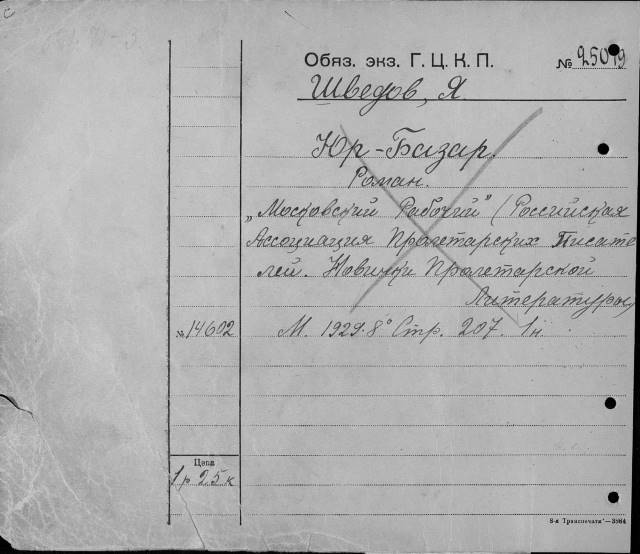 Обяз. экз. Г. Ц. К. П.
№ 25019
Шведов, Я.
Юр-Базар.
Роман.
„Московский Рабочий" (Российская
Ассоциация Пролетарских Писате
лей. Новинки Пролетарской
Литературы)
№ 14602
М. 1929. 8° Стр. 207. 1н
Цена
1 р 25 к
8-я „Транспечати"—3864